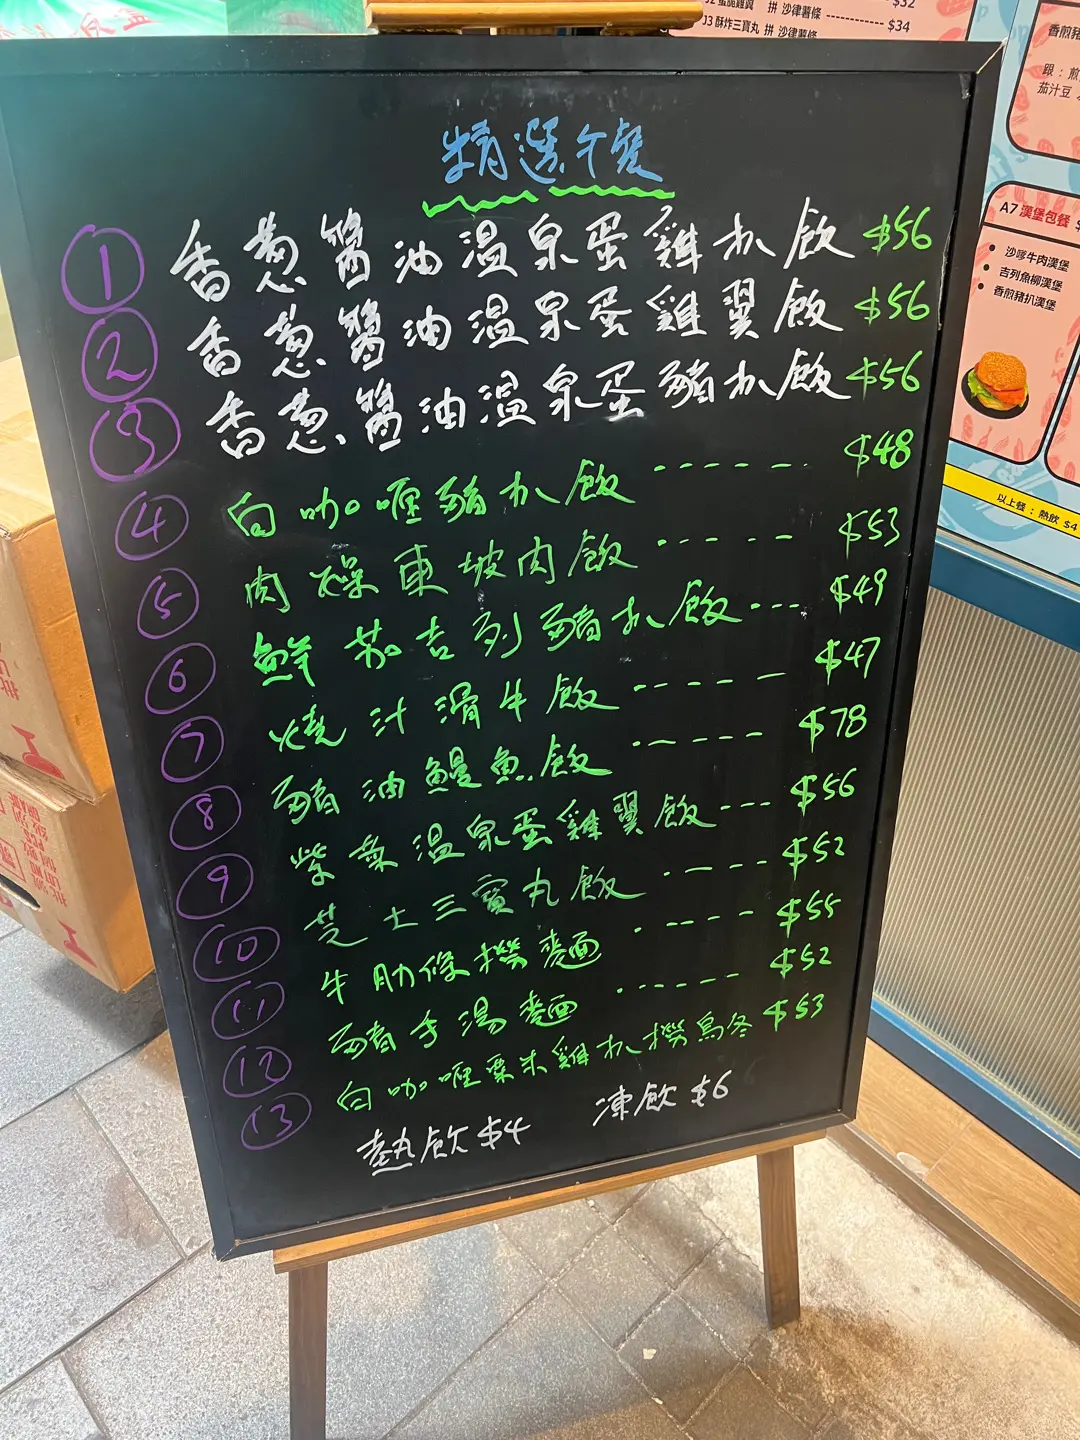 J2 蜜脆雞翼 拼 沙律薯條 ------------ $32
J3 酥炸三寶丸 拼 沙律薯條 ------------ $34
精選午餐
① 香葱醬油温泉蛋雞扒飯 $56
② 香葱醬油温泉蛋雞翼飯 $56
③ 香葱醬油温泉蛋豬扒飯 $56
④ 白咖喱豬扒飯 ------ $48
⑤ 肉燥東坡肉飯 ------ $53
⑥ 鮮茄吉列豬扒飯 --- $49
⑦ 燒汁滑牛飯 ------ $47
⑧ 豬油鰻魚飯 ------ $78
⑨ 紫菜温泉蛋雞翼飯 --- $56
⑩ 芝士三寶丸飯 ----- $52
⑪ 牛肋條撈麵 ----- $55
⑫ 豬手湯麵 ------ $52
⑬ 白咖喱粟米雞扒撈烏冬 $53
熱飲 $4 凍飲 $6
香煎豬
跟：煎
茄汁豆
A7 漢堡包餐
• 沙嗲牛肉漢堡
• 吉列魚柳漢堡
• 香煎豬扒漢堡
以上餐：熱飲 $4